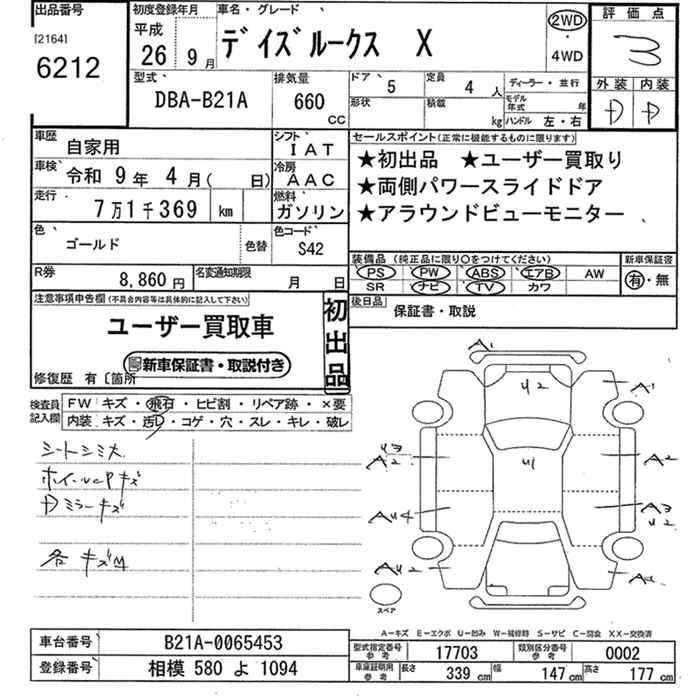 出品番号
[2164]
6212
初度登録年月
平成
26年 9月
車名・グレード
デイズルークス X
2WD
・
4WD
評価点
3
外装 内装
D D
型式
DBA-B21A
排気量
660 CC
ドア 5
定員 4人
形状
積載 kg
ディーラー・並行
モデル年式 年
ハンドル 左・右
車歴 自家用
シフト IAT
車検 令和 9年 4月( 日)
冷房 AAC
走行 7万1千369 km
燃料 ガソリン
色 ゴールド
色替
色コード S42
R券 8,860円
名変通知期限 月 日
セールスポイント(正常に機能するものに限ります)
★初出品 ★ユーザー買取り
★両側パワースライドドア
★アラウンドビューモニター
装備品 (純正品に限り○をつけてください)
新車保証書
PS PW ABS エアB AW
SR ナビ TV カワ
有・無
後日品 保証書・取説
注意事項申告欄(不具合内容等は具体的に記入して下さい)
ユーザー買取車
新車保証書・取説付き
初出品
修復歴 有〔箇所
検査員記入欄
FW キズ・飛石・ヒビ割・リペア跡・×要
内装 キズ・汚レ・コゲ・穴・スレ・キレ・破レ
シートシミ大
ホイールcpキズ
Dミラーキズ
各キズM
A1
U2
A1
U3
A2
U1
A2
AU4
A3
U2
AU2
A2
スペア
A-キズ E-エクボ U-凹み W-補修跡 S-サビ C-腐食 XX-交換済
車台番号 B21A-0065453
登録番号 相模 580 よ 1094
型式指定番号 参考 17703
類別区分番号 参考 0002
車庫証明用 参考 長さ 339cm 幅 147cm 高さ 177cm